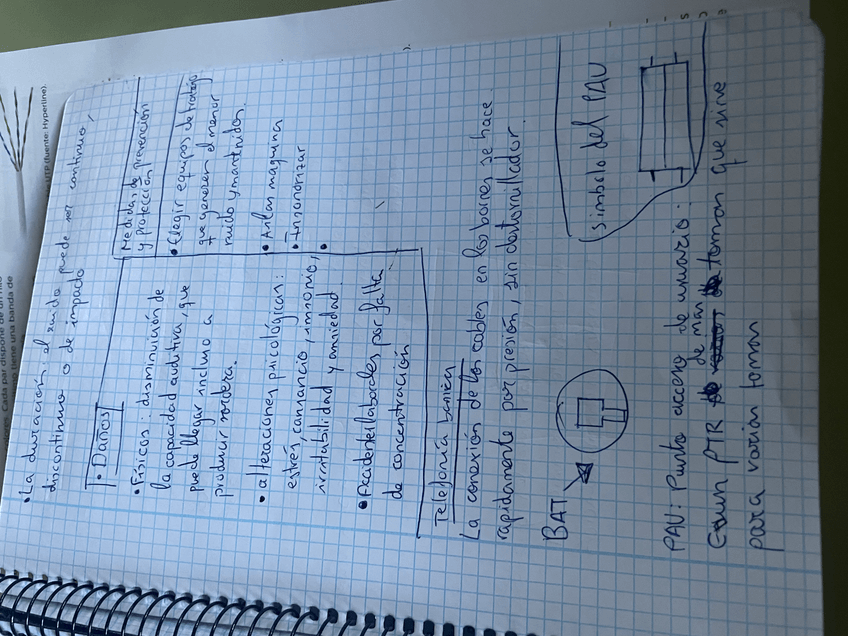 • La duración el ruido puede ser continuo,
discontinuo o de impacto
• Daños
• Físicos: disminución de
la capacidad auditiva, que
puede llegar incluso a
producir sordera.
• alteraciones psicológicas:
estrés, cansancio, insomnio,
irritabilidad y ansiedad.
• Accidentes laborales por falta
de concentración
Medidas de prevención
y protección
• Elegir equipos de trabajo
que generen el menor
ruido y mantenidos.
• Aislar maquina
• Insonorizar
•
Telefonía basica
La conexión de los cables en los bornes se hace
rapidamente por presión, sin destornillador.
BAT
simbolo del PAU
PAU: Punto acceso de usuario:
de mas
un PTR tomas que sirve
para varias tomas
(fuente: Hyperline).
Cada par dispone de un hilo
tiene una banda de